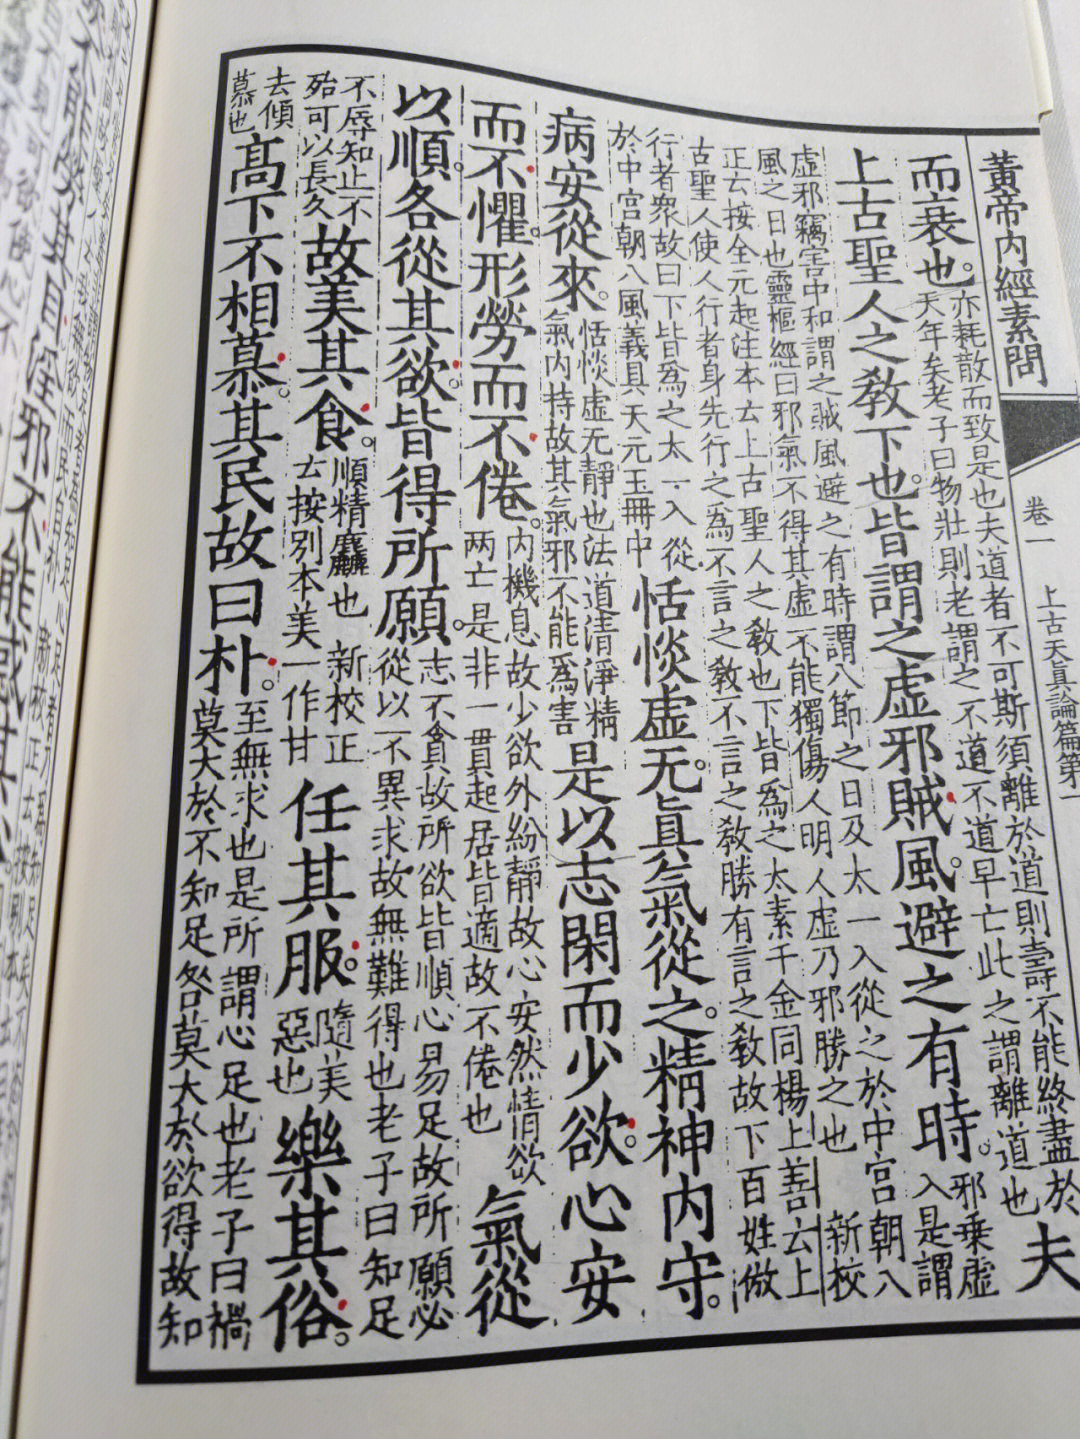 黃帝內經素問 卷一 上古天眞論篇第一
而衰也。
亦耗散而致是也夫道者不可斯須離於道則壽不能終盡於
天年矣老子曰物壯則老謂之不道不道早亡此之謂離道也
夫
上古聖人之敎下也。皆謂之虛邪賊風。避之有時。
邪乗虛
入是謂
虛邪竊害中和謂之賊風避之有時謂八節之日及太一入從之於中宮朝八
風之日也靈樞經曰邪氣不得其虛不能獨傷人明人虛乃邪勝之也 新校
正云按全元起注本云上古聖人之敎也下皆爲之太素千金同楊上善云上
古聖人使人行者身先行之爲不言之敎不言之敎勝有言之敎故下百姓倣
行者衆故曰下皆爲之太一入從
於中宮朝八風義具天元玉冊中
恬惔虛无。眞氣從之。精神內守。
病安從來。
恬惔虛无靜也法道清淨精
氣內持故其氣邪不能爲害
是以志閑而少欲。心安
而不懼。形勞而不倦。
內機息故少欲外紛靜故心安然情欲
两亡是非一貫起居皆適故不倦也
氣從
以順。各從其欲。皆得所願。
志不貪故所欲皆順心易足故所願必
從以不異求故無難得也老子曰知足
不辱知止不
殆可以長久
故美其食。
順精麤也 新校正
云按別本美一作甘
任其服。
隨美
惡也
樂其俗。
去傾
慕也
髙下不相慕。其民故曰朴。
至無求也是所謂心足也老子曰禍
莫大於不知足咎莫大於欲得故知
其目淫邪不能惑其心。